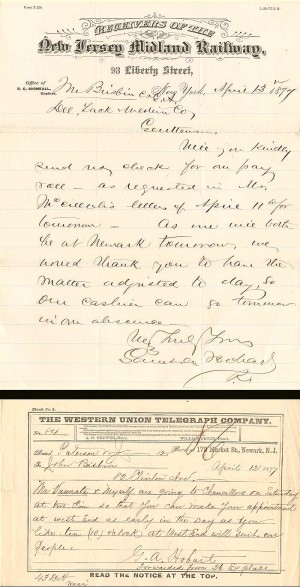 RECEIVERS OF THE
New Jersey Midland Railway,
93 Liberty Street,
Office of
New York, April 13th 1877
Mr Brisbin
Del. Lack & Western Co
Gentlemen
Will you kindly
send us check for our pay
roll — as requested in Mr.
letters of April 11th for
tomorrow — As we will both
be at Newark tomorrow, we
would thank you to have the
matter adjusted to day, so
our cashier can go tomorrow
in our absence —
Very Truly Yours
THE WESTERN UNION TELEGRAPH COMPANY.
178 Market St., Newark, N. J.
Paterson NJ
April 13 1877
To John Brisbin
52 Clinton Ave.
& Myself are going to Chancellors on Saturday
at two P.m. so that you can make your appointment
at West End as early in the day as you
like ten (10) o'clock, at West End will suit our
people.
G. A. Hobart
Forwarded from 26 Ex place
READ THE NOTICE AT THE TOP.